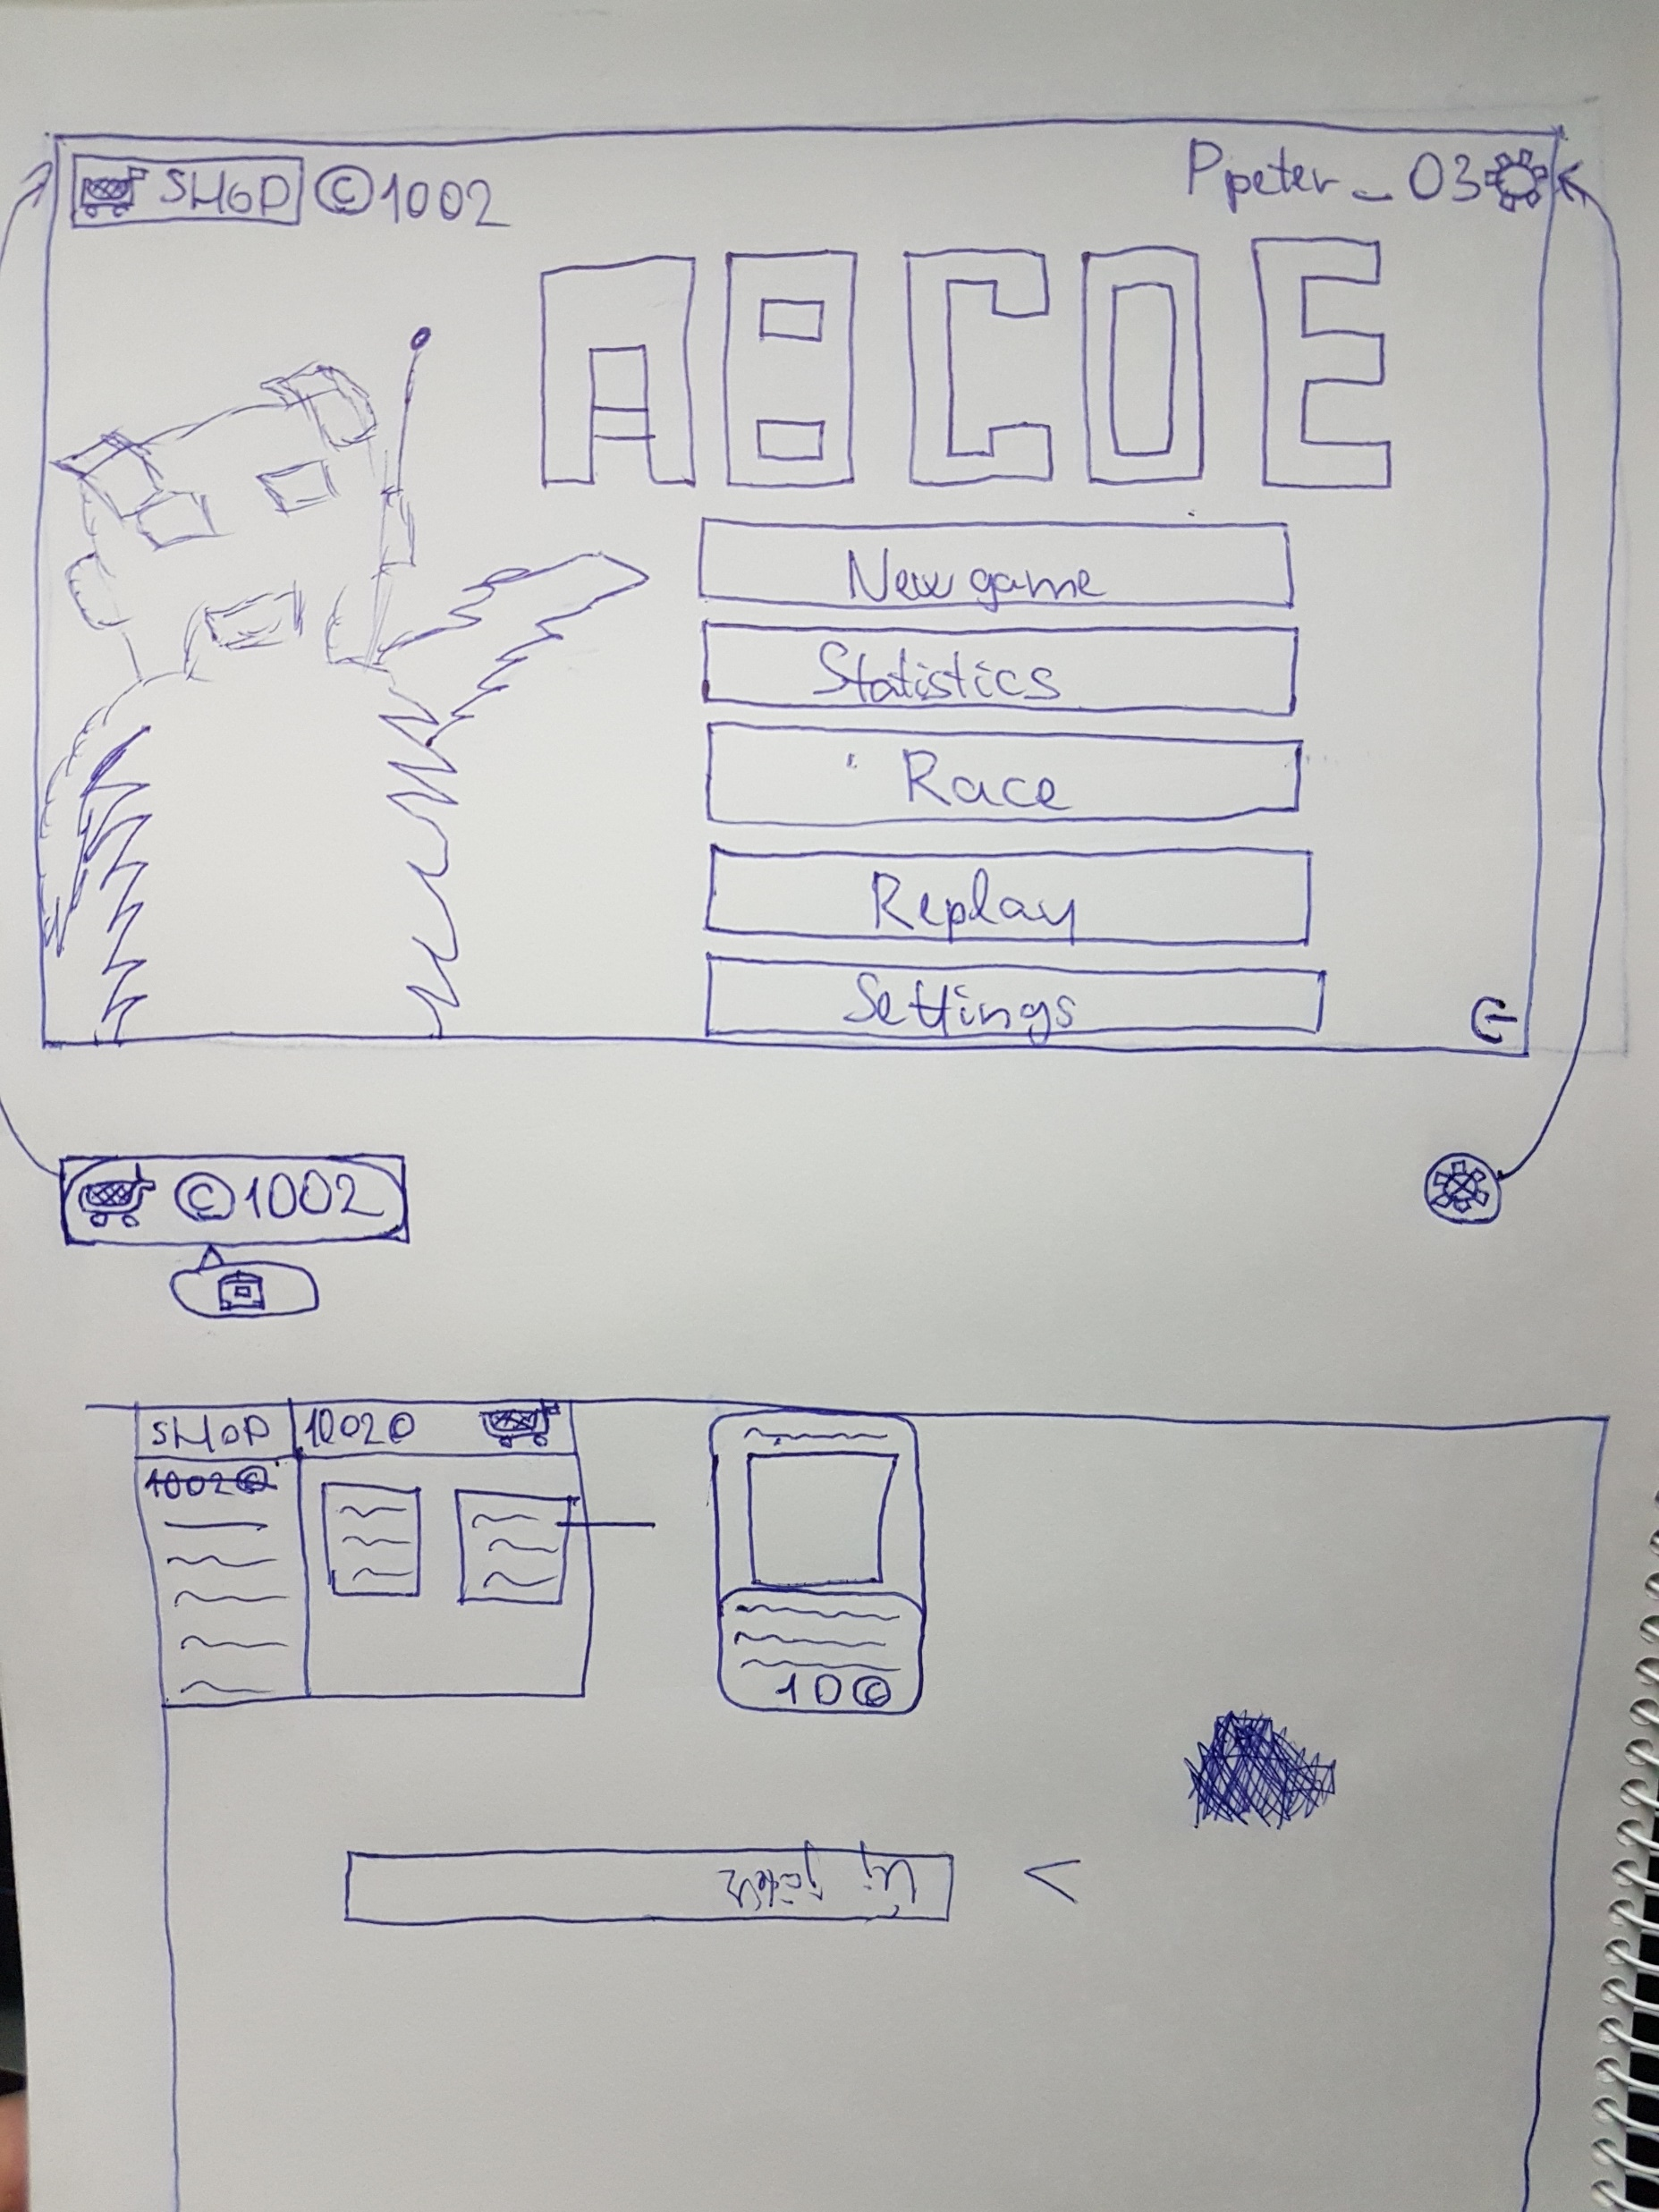 SHOP ©1002
Ppeter_03
ABCDE
New game
Statistics
Race
Replay
Settings
©1002
SHOP 1002©
1002©
10©